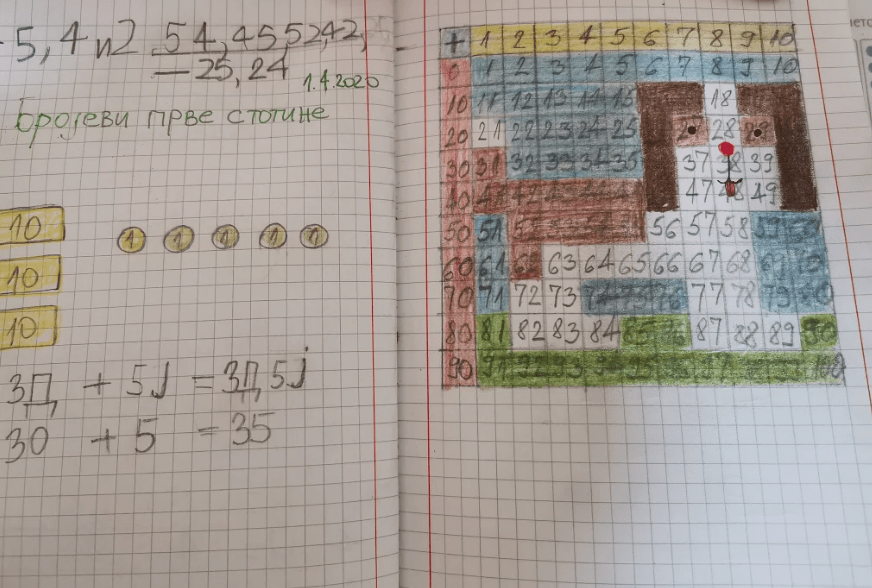 5, 4 и 2 54, 45, 52, 42,
— 25, 24
1.4.2020
Бројеви прве стотине
10
1 1 1 1 1
10
10
3Д + 5Ј = 3Д 5ј
30 + 5 = 35
+ 1 2 3 4 5 6 7 8 9 10
0 1 2 3 4 5 6 7 8 9 10
10 11 12 13 14 15 18
20 21 22 23 24 25 28
30 31 32 33 34 35 37 38 39
40 41 42 47 48 49
50 51 56 57 58
60 61 62 63 64 65 66 67 68 69
70 71 72 73 74 75 76 77 78 79 80
80 81 82 83 84 85 86 87 88 89 90
90 91 92 93 94 95 96 97 100